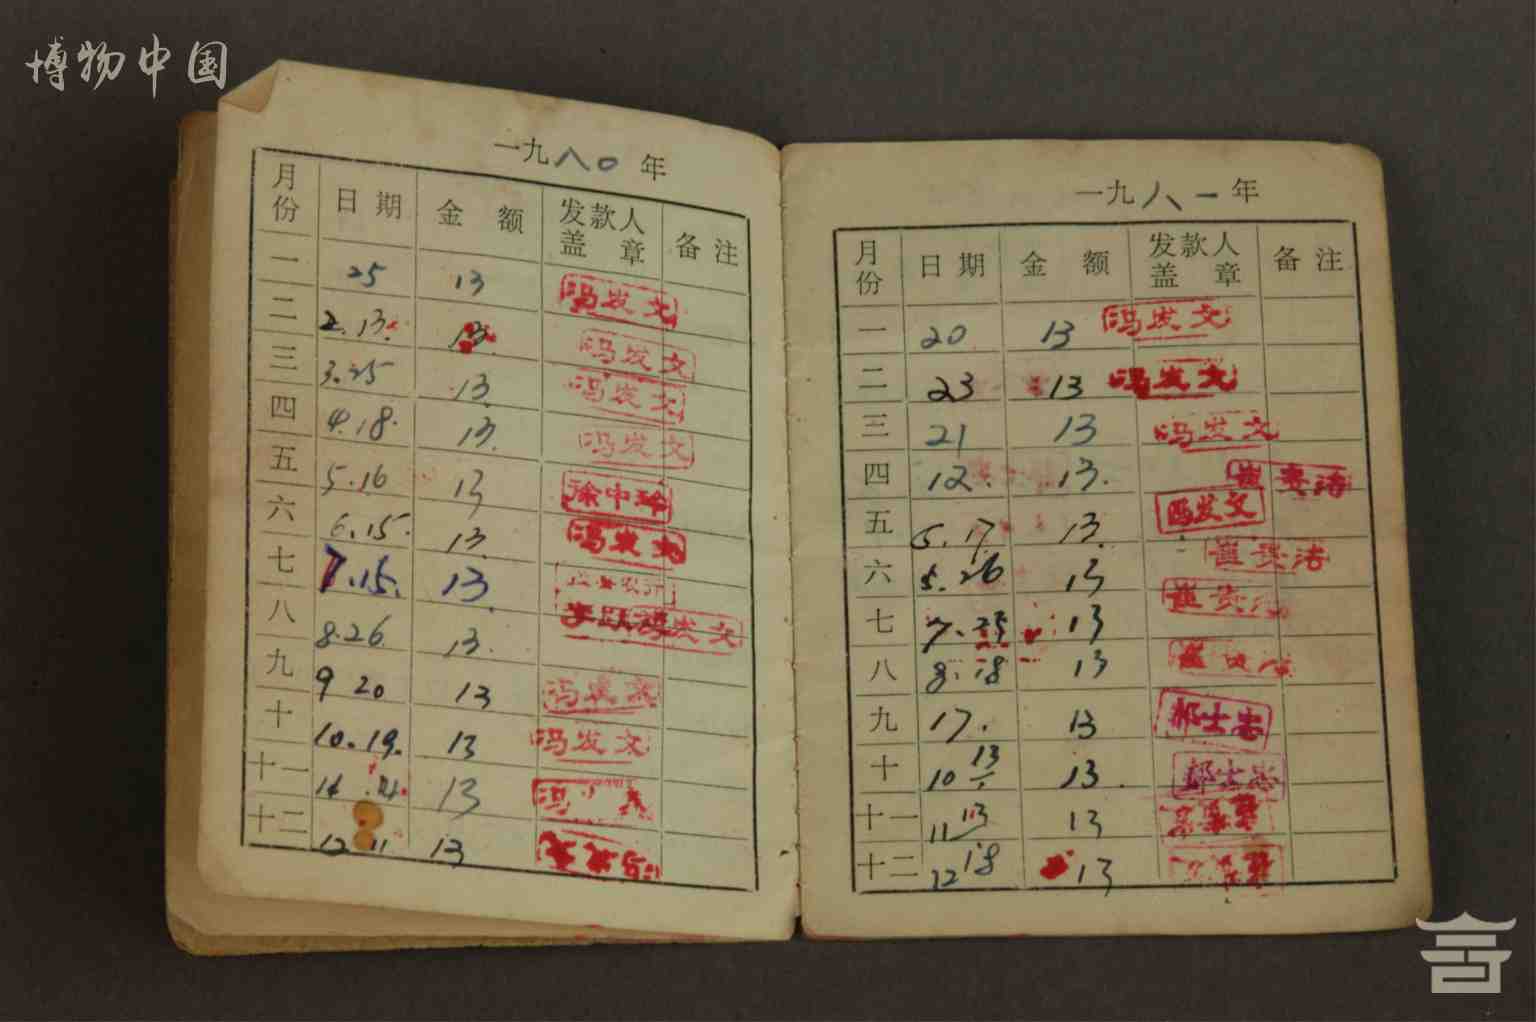 博物中国
一九八〇年
月份 日期 金额 发款人盖章 备注
一 25 13 冯发文
二 2.13. 13. 冯发文
三 3.25 13. 冯发文
四 4.18. 13. 冯发文
五 5.16 13 徐中玲
六 6.15. 13. 冯发文
七 7.15. 13.
八 8.26 13. 冯发文
九 9 20 13 冯发文
十 10.19. 13 冯发文
十一 13 冯
十二 12 11 13
一九八一年
月份 日期 金额 发款人盖章 备注
一 20 13 冯发文
二 23 13 冯发文
三 21 13 冯发文
四 12. 13. 崔贵洁
五 5.17. 13. 冯发文
六 5.26 13 崔贵洁
七 7.25 13 崔贵
八 8.18 13
九 17. 13 郝士忠
十 10 13 13. 郝士忠
十一 11 13 13
十二 12 18 13